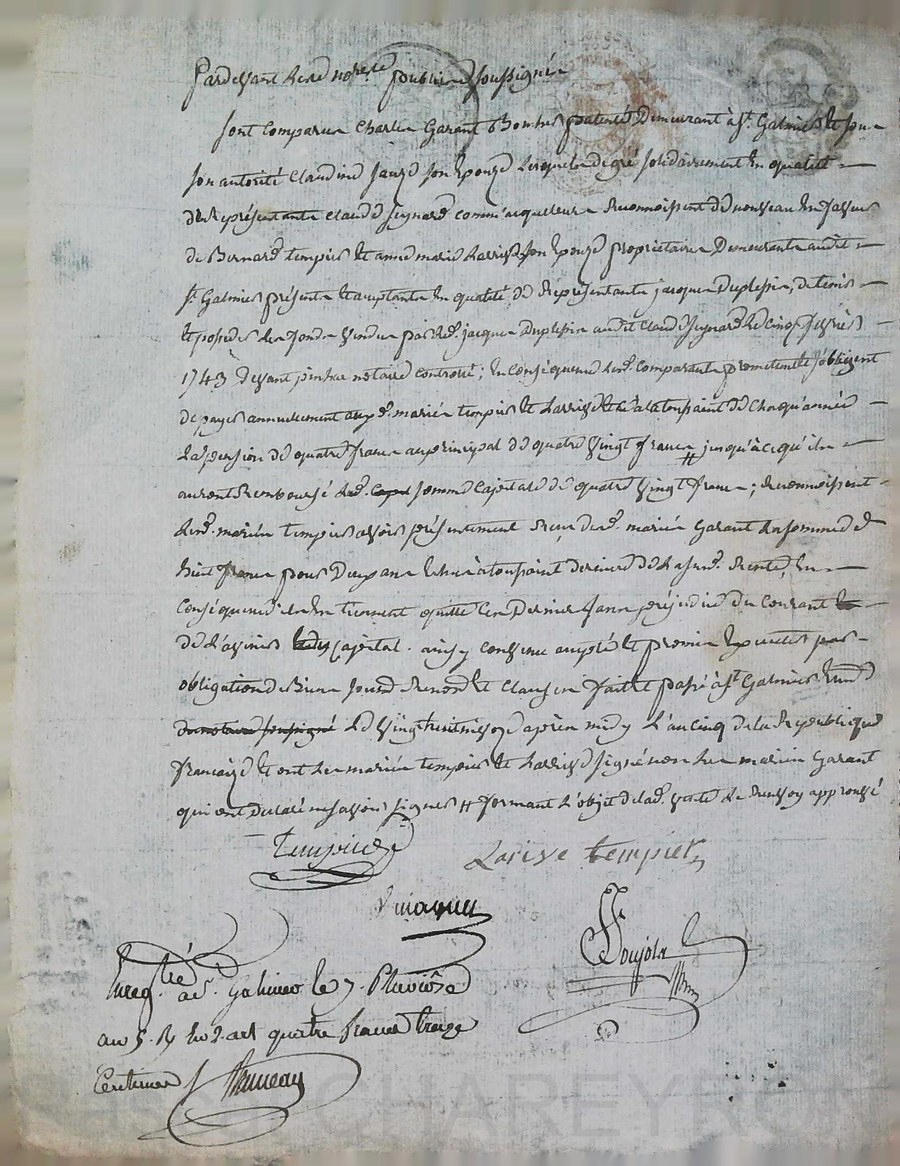 Pardevant les notres publics soussignés
sont comparus Charles Garant patenté demeurant à st. Galmier et sous
son autorité Claudine son épouse lesquels de gré solidairement en qualité
de représentants Claude Seynard comm'acquéreurs reconnoissent de nouveau en faveur
de Bernard tempier et anne marie Larrive son épouse propriétaires demeurants audit
st. Galmier présents et acceptants en qualité de représentants jacques Duplessis, de tenir
et posséder les fonds vendus par led. jacques Duplessis audit Claude Seynard le cinq février
1743 devant notaire controllé; en conséquence lesd. comparants promettent et s'obligent
de payer annuellement auxd. mariés tempier et Larrive et ce à la toussaint de chaqu'année
la pension de quatre francs au principal de quatre vingt francs # jusqu'à ce qu'ils
auront remboursé lad. somme capitale de quatre vingt francs; reconnoissent
lesd. mariés tempier avoir présentement reçu desd. mariés Garant la somme de
huit francs pour deux ans échus à toussaint dernier de la susd. rente, en
conséquence ils les en tiennent quitte sans préjudice du courant
de l'avenir capital. ainsy convenu accepté et promis exécuter par
obligation de biens jours renon. et clauses fait et passé à st. Galmier
du notaire soussigné le vingt huit nivose après midy l'an cinq de la République
francaise et ont les mariés tempier et Larrive signé non les mariés Garant
qui ont déclaré ne savoir signer # formant l'objet de lad. vente le renvoy approuvé
Tempier
Larive tempier
Soujola
Enreg.tré à st. Galmier le 7. Pluviôse
an 5. quatre francs treize
Centimes
CHAREYRON